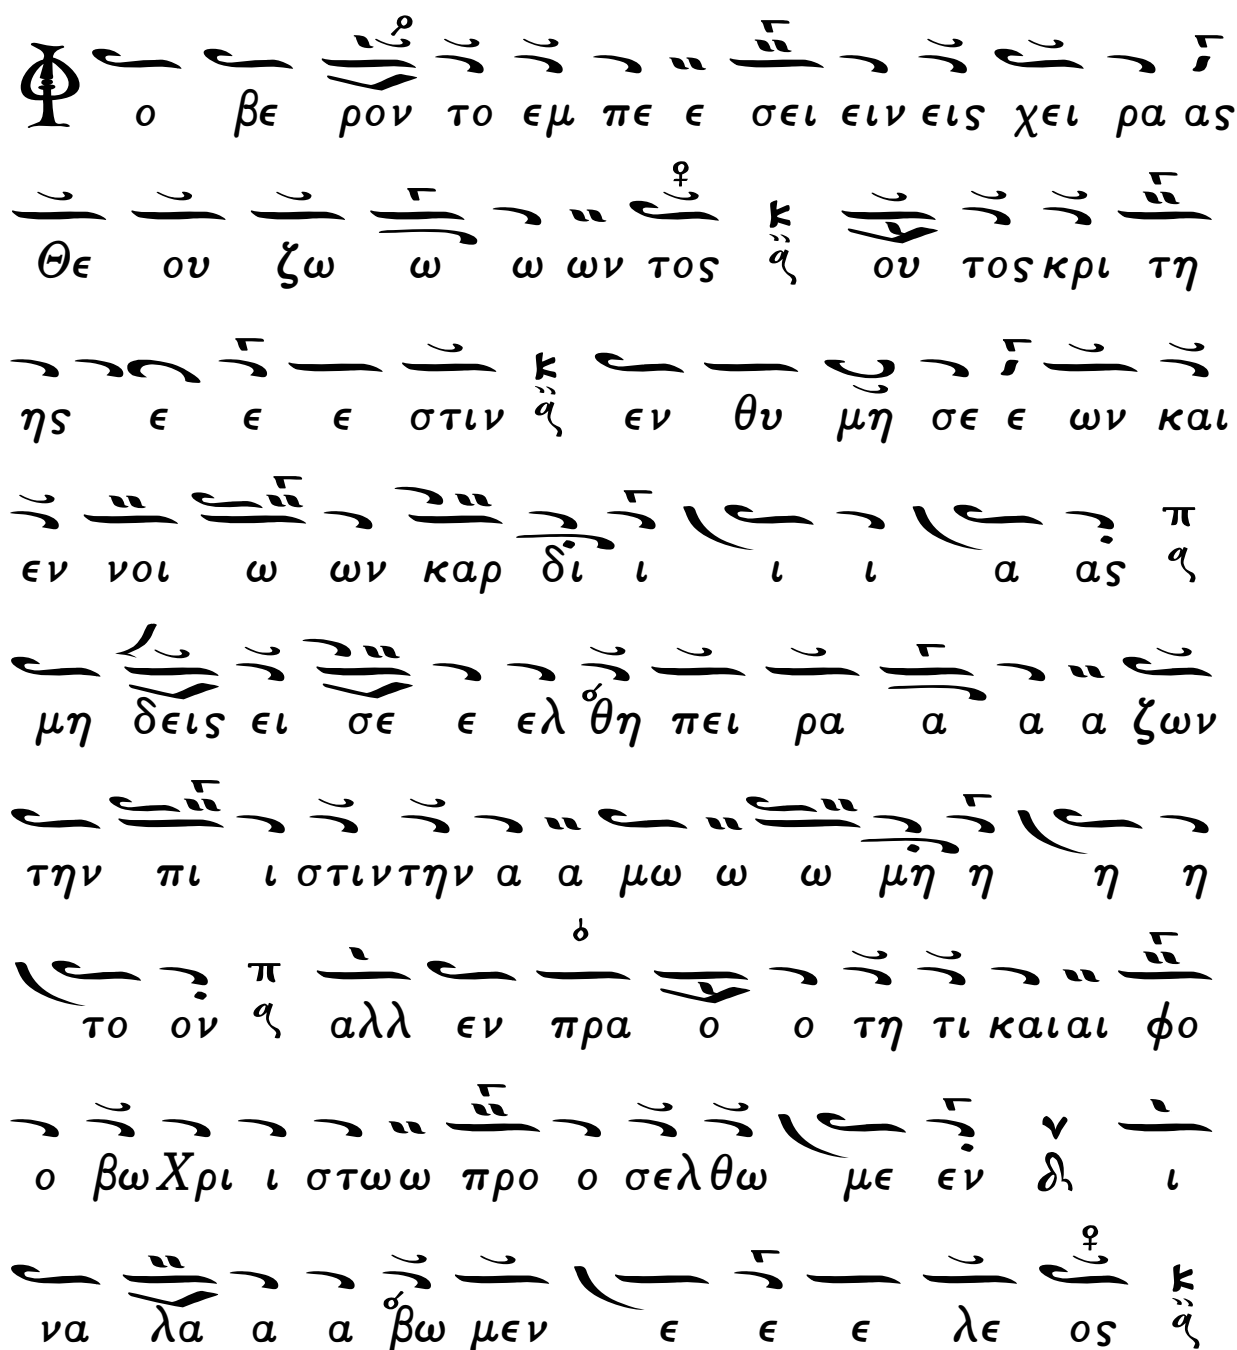 Φ ο βε ρον το εμ πε ε σει ειν εις χει ρα ας
Θε ου ζω ω ω ων τος κ ου τος κρι τη
ης ε ε ε στιν κ εν θυ μη σε ε ων και
εν νοι ω ων καρ δι ι ι ι α ας π
μη δεις ει σε ε ελ θη πει ρα α α α ζων
την πι ι στιν την α α μω ω ω μη η η η
το ον π αλλ εν πρα ο ο τη τι και αι φο
ο βω Χρι ι στω ω προ ο σελ θω με εν ι
να λα α α βω μεν ε ε ε λε ος κ